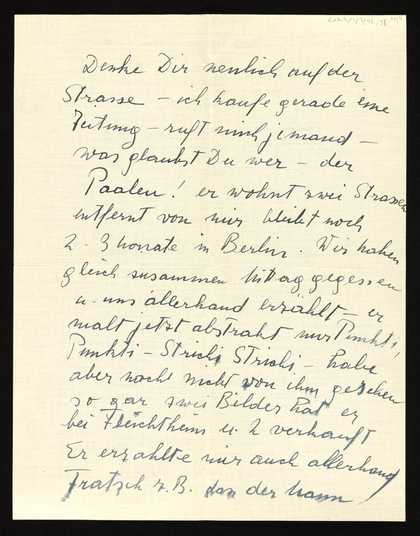 Denke Dir neulich auf der
Strasse – ich kaufe gerade eine
Zeitung – ruft mich jemand –
was glaubst Du wer – der
Paalen! er wohnt zwei Strassen
entfernt von mir bleibt noch
2-3 Monate in Berlin. Wir haben
gleich zusammen Mittag gegessen
u. uns allerhand erzählt – er
malt jetzt abstrakt nur Punkti,
Punkti – Strichi Strichi – habe
aber noch nicht von ihm gesehen
so gar zwei Bilder hat er
bei Flechtheim u. 2 verkauft
Er erzählte mir auch allerhand
Tratsch z.B. der Mann